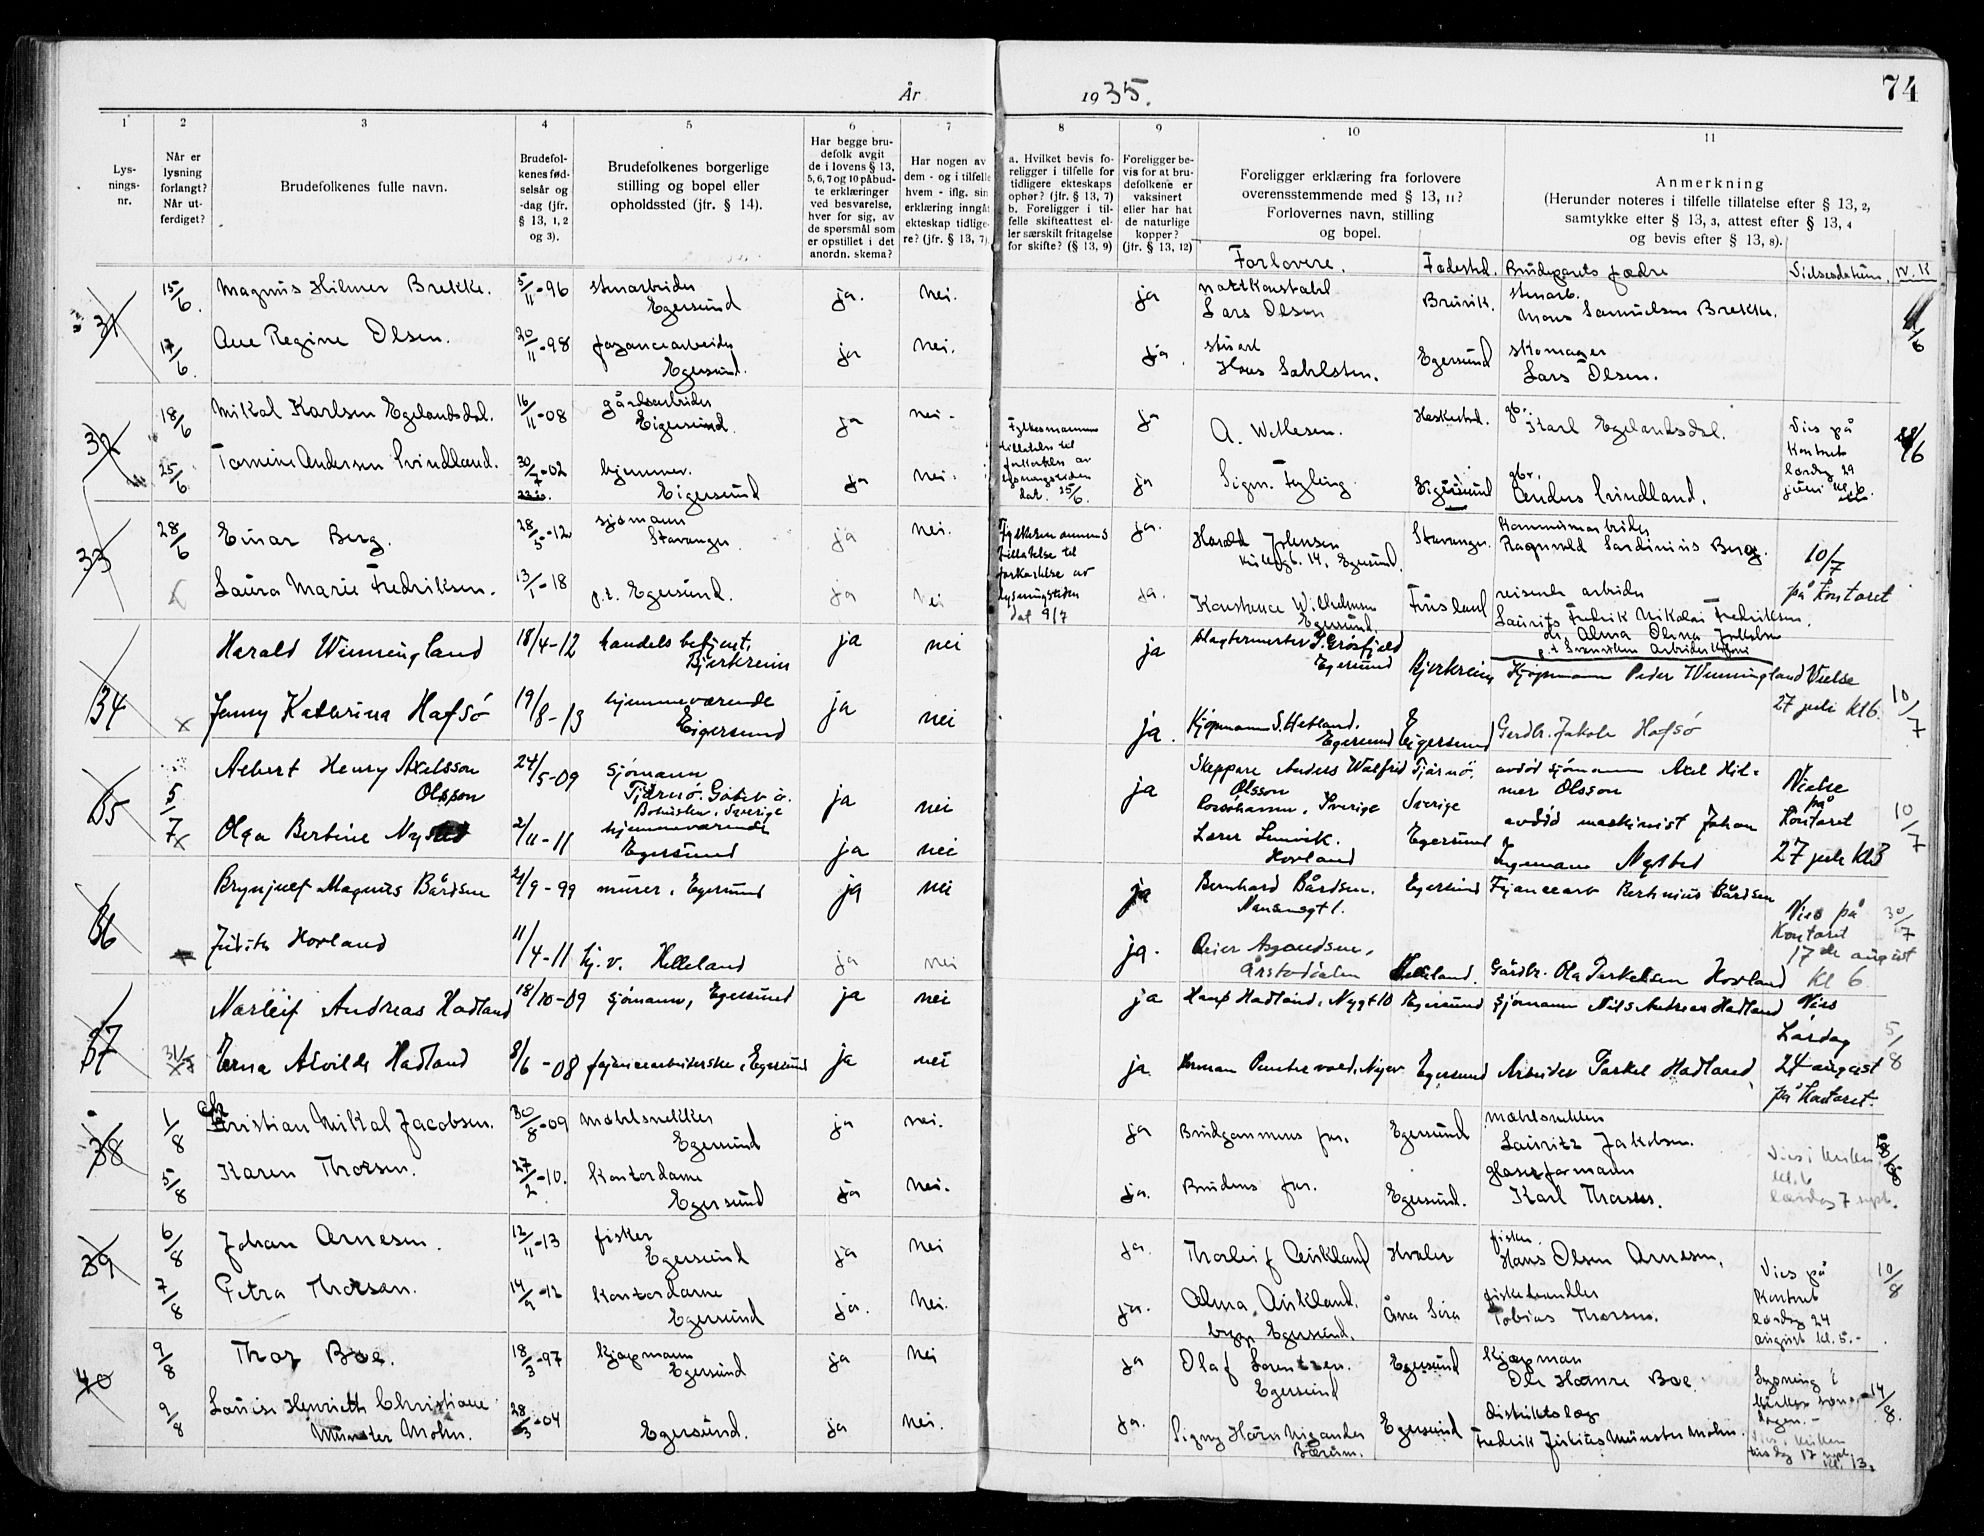 År 1935.
74
1 2 3 4 5 6 7 8 9 10 11
Lys-
nings-
nr.
Når er
lysning
forlangt?
Når ut-
ferdiget?
Brudefolkenes fulle navn.
Brudefol-
kenes fød-
selsår og
-dag (jfr.
§ 13, 1, 2
og 3).
Brudefolkenes borgerlige
stilling og bopel eller
opholdssted (jfr. § 14).
Har begge bru-
defolk avgit
de i lovens § 13,
5, 6, 7 og 10 påbud-
te erklæringer
ved besvarelse,
hver for sig, av
de spørsmål som
er opstillet i det
anordn. skema?
Har nogen av
dem - og i tilfelle
hvem - iflg. sin
erklæring inngåt
ekteskap tidlige-
re? (jfr. § 13, 7)
a. Hvilket bevis fo-
religger i tilfelle for
tidligere ekteskaps
ophør? (jfr. § 13, 7)
b. Foreligger i til-
felle skifteattest el-
ler særskilt fritagelse
for skifte? (§ 13, 9)
Foreligger be-
vis for at bru-
defolkene er
vaksinert
eller har hat
de naturlige
kopper?
(jfr. § 13, 12)
Foreligger erklæring fra forlovere
overensstemmende med § 13, 11?
Forlovernes navn, stilling
og bopel.
Anmerkning
(Herunder noteres i tilfelle tillatelse efter § 13, 2,
samtykke efter § 13, 3, attest efter § 13, 4
og bevis efter § 13, 8).
Forlovere. Fødested. Brudeparets fædre Vielsesdatum. N.K
31 15/6. Magnus Hilmer Brekke. 5/11-96 stenarbeider
Egersund ja. nei. ja
Lars Olsen Brusvik. stenarb.
Mons Samuelsen Brekke.
17/6. Ane Regine Olsen. 20/11-98 fajancearbeider
Egersund. ja nei. ja.
Hans Sahlsten. Egersund skomager
Lars Olsen. /6
32 18/6 Mikal Karlsen Egelandsdal. 16/11-08 gårdsarbeider
Eigersund. ja nei. Fylkesmannens
tillatelse til
forkortelse av
lysningstiden
dat. 25/6. ja A. Wetlesen. Heskestad. gb.
Karl Egelandsdal. Vies på
Kontoret
lørdag 29
juni kl. 6. /6
25/6 Tomine Andersen Svindland. 30/7-02 hjemmev.
Eigersund ja nei. ja Sigm. Fyling. Eigersund gbr.
Anders Svindland.
33 28/6 Einar Berg. 28/5-12 sjømann
Stavanger. ja nei. Fylkesmannens
tillatelse til
forkortelse av
lysningstiden
dat 9/7 ja. Harald Johnsen
14, Egersund. Stavanger. Kommunearbeider
Ragnvald Sardinius Berg. 10/7
på Kontoret
Laura Marie Fredriksen. 13/1-18 p.t. Egersund. ja Nei ja. Konstance Wilhelmsen
Egersund. Finsland reisende arbeider
Laurits Fredrik Nikolai Fredriksen.
og Alma Olena Jakobsen
p.t. Svanviken Arbeiderkoloni
34 Harald Winningland 18/4-12 handelsbetjent,
Bjerkreim ja nei ja Slagtermester P. Grøsfjeld
Egersund Bjerkreim Kjøpmann Peder Winningland Vielse
27 juli kl 6. 10/7
x Jenny Kathrina Hafsø 19/8-13 hjemmeværende
Eigersund ja nei ja. Kjøpmann S. Hetland.
Egersund Eigersund Gerdbr. Jakob Hafsø
35 5/7 Albert Henry Axelsson
Olsson 24/5-09 sjømann
Tjärnö.
Bohuslen. Sverige ja nei ja Skeppare Anders Walfrid
Olsson
Sverige Tjärnö.
Sverige avdød sjømann Axel Hil-
mer Olsson Vielse
på
Kontoret
27 juli kl 3 10/7
x Olga Bertine Nysted 2/11-11 hjemmeværende
Egersund ja nei Egersund avdød maskinist Johan
Ingemann Nysted
36 Brynjulf Magnus Bårdsen 21/9-99 murer, Egersund ja nei ja Bernhard Bårdsen.
Nansensgt 1. Egersund Fajancearb Bertinius Bårdsen Vies på
Kontoret
17de august
Kl 6 30/7
Judith Hovland 11/4-11 hj.v. Helleland ja nei ja.
Årstaddalen Helleland. Gårdbr. Ola Torkelsen Hovland
37 Narleif Andreas Hadland 18/10-09 sjømann, Egersund ja nei ja Hans Hadland, Nygt 10 Egersund Sjømann Nils Andreas Hadland Vies
Lørdag
24 august
på Kontoret. 5/8
31/7 Erna Alvilde Hadland 8/6-08 fajancearbeiderske, Egersund ja nei ja Egersund Arbeider Torkel Hadland
38 1/8 Christian Mikal Jacobsen. 30/8-09 møbelsnekker
Egersund ja nei. ja Brudgommens far. Egersund møbelsnekker
Lauritz Jakobsen. Vies i kirken
kl. 6
lørdag 7 sept.
5/8 Karen Thorsen. 27/2-10. Kontordame
Egersund ja nei. ja. Brudens far. Egersund. glasurformann
Karl Thorsen.
39 6/8 Johan Arnesen. 12/11-13 fisker
Egersund ja nei ja. Thorleif Aurkland Hvaler fisker.
Hans Olsen Arnesen. Vies på
Kontoret
lørdag 24
august kl. 5.- 10/8
7/8 Petra Thorsen. 14/9-12 Kontordame
Egersund ja. Nei. ja. Alma Aurkland.
Egersund. Åna Sira fiskehandler
Tobias Thorsen.
40 9/8 Thor Bøe. 18/3-97 kjøpmann
Egersund ja Nei ja Olaf Lorentzen.
Egersund Egersund kjøpman
Ole Hanre Bøe Lysning i
kirken søn-
dagen.-
Vies i kirken
tirsdag 17 sept.
kl. 13. 14/8.
9/8 Louise Henriette Christiane
Münster Mohn. 28/3-04 Egersund. ja nei. ja. Signy Hørn Nigander
Bærum. Egersund distriktslæge
Fredrik Julius Münster Mohn.